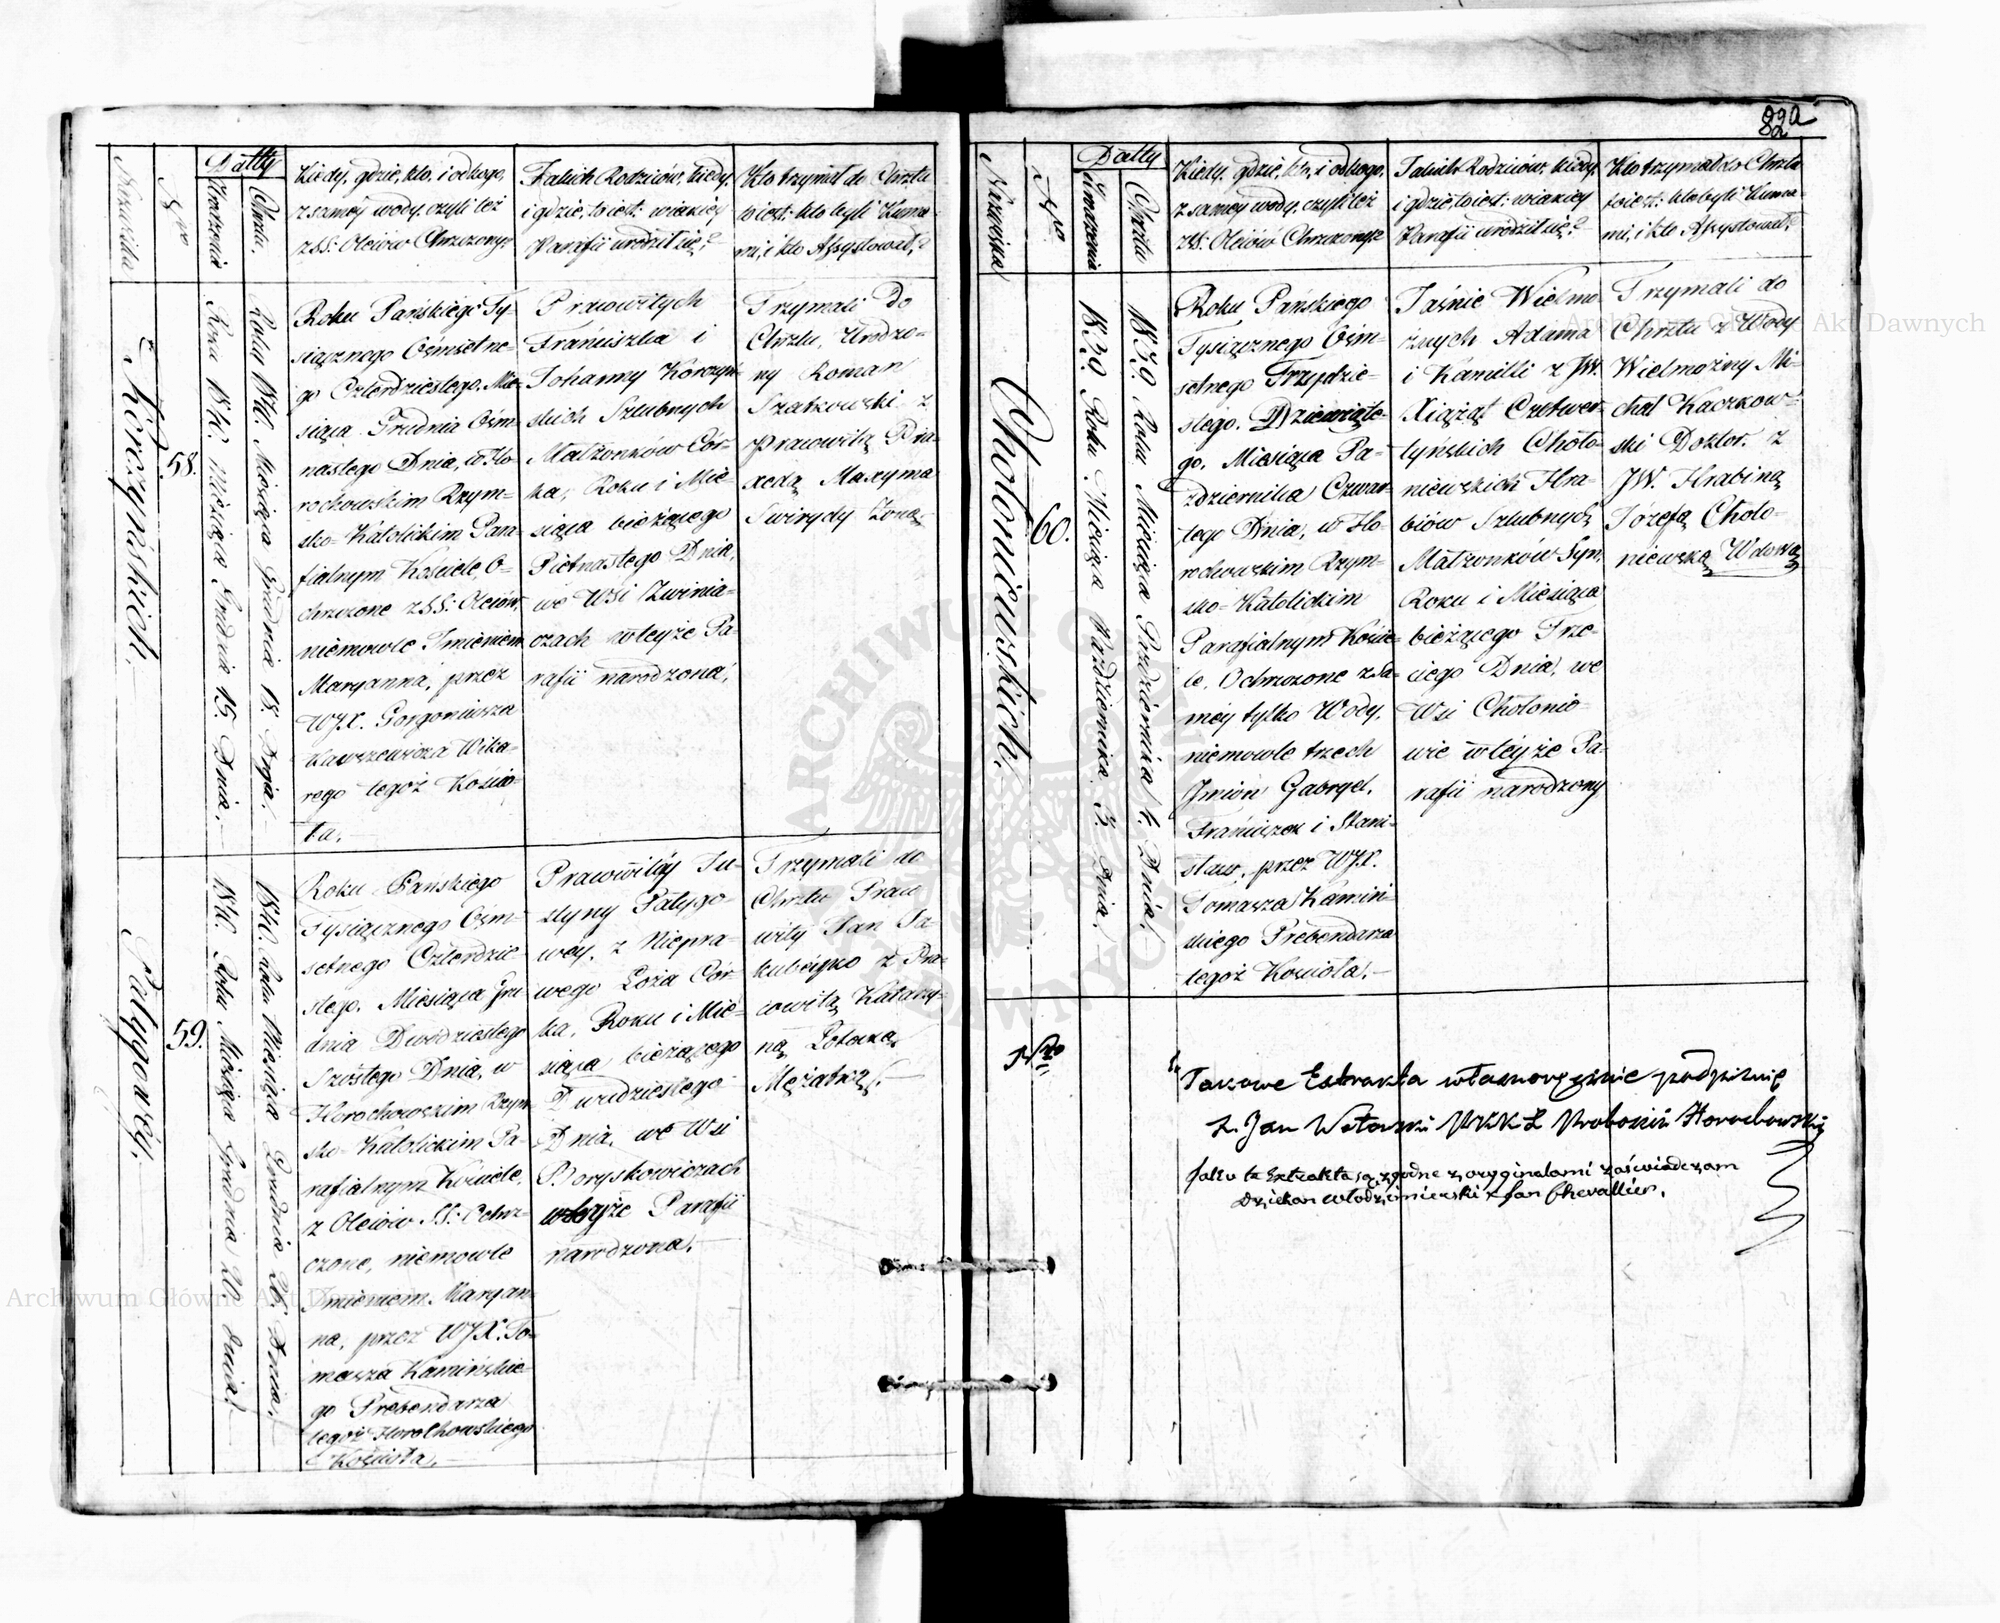 82a
Nazwiska
Nro
Datty
Urodzenia
Chrztu.
Kiedy, gdzie, kto, i od kogo,
z samey wody, czyli też
z SS: Oleiów Chrzczony?
Jakich Rodziców, kiedy,
i gdzie, to iest: w iakiey
Parafii urodził się?
Kto trzymał do Chrztu
to iest: kto byli Kuma-
mi, i kto Assystował?
Korczyńskich.
58.
Roku 1840. Miesiąca Grudnia 15. Dnia.
Roku 1840. Miesiąca Grudnia 18. Dnia.
Roku Pańskiego Ty-
siącznego Ośmsetne-
go Czterdziestego, Mie-
siąca Grudnia Ośm-
nastego Dnia, w Ho-
rochowskim Rzym-
sko-Katolickim Para-
fialnym Kościele, O-
chrzczone z SS: Oleiów,
niemowle Imieniem
Maryanna, przez
WJX. Gorgoniusza
Wika-
rego tegoż Kościo-
ła.
Prawowitych
Franciszka i
Johanny Korczyń-
skich Szlubnych
Małżonków Cór-
ka, Roku i Mie-
siąca bieżącego
Piętnastego Dnia,
we Wsi Zwinia-
czach w teyże Pa-
rafii narodzona,
Trzymali do
Chrztu, Urodzo-
ny Roman
Szatkowski z
Prawowitą Pra-
xedą Maxyma
Swirydy Żoną,
Patygowéy.
59.
1840. Roku Miesiąca Grudnia 20. Dnia.
1840. Roku Miesiąca Grudnia 26. Dnia.
Roku Pańskiego
Tysiącznego Ośm-
setnego Czterdzie-
stego, Miesiąca Gru-
dnia Dwódziestego
Szóstego Dnia, w
Horochowskim Rzym-
sko-Katolickim Pa-
rafialnym Kościele,
z Oleiów SS: Ochrz-
czone, niemowle
Imieniem Maryan-
na, przez WJX. To-
masza Kamińskie-
go Prebendarza
tegoż Horochowskiego
Kościoła.
Prawowitéy Ju-
styny Patygo-
wéy, z Niepra-
wego Łoża Cór-
ka, Roku i Mie-
siąca bieżącego
Dwudziestego
Dnia, we Wsi
Boryskowiczach
w teyże Parafii
narodzona.
Trzymali do
Chrztu Prawo
wity Jan Ja-
z Pra-
wowitą Katarzy-
ną Potocką
Mężatką.
Nazwiska
Nro
Datty
Urodzenia
Chrztu
Kiedy, gdzie, kto, i od kogo,
z samey wody, czyli też
z SS: Oleiów Chrzczony?
Jakich Rodziców, kiedy,
i gdzie, to iest: w iakiey
Parafii urodził się?
Kto trzymał do Chrztu
to iest: kto byli Kuma-
mi, i kto Assystował?
Chołoniewskich.
60.
1839. Roku Miesiąca Października 3. Dnia.
1839. Roku Miesiąca Października 4. Dnia.
Roku Pańskiego
Tysiącznego Ośm-
setnego Trzydzie-
stego Dziewiąte-
go, Miesiąca Pa-
ździernika Czwar-
tego Dnia, w Ho-
rochowskim Rzym-
sko-Katolickim
Parafialnym Koście-
le, Ochrzczone z Sa-
méy tylko Wody,
niemowle trzech
Jmion Gabryel,
Franciszek i Stani-
sław, przez WJX.
Tomasza Kamiń-
skiego Prebendarza
tegoż Kościoła.
Jaśnie Wielmo
żnych Adama
i Kamilli z JW.
Xiążąt Czetwer-
tyńskich Choło-
niewskich Hra-
biów Szlubnych
Małżonków Syn,
Roku i Miesiąca
bieżącego Trze-
ciego Dnia, we
Wsi Chołonio-
wie w téyże Pa-
rafii narodzony
Trzymali do
Chrztu z Wody
Wielmożny Mi-
chał Kaczkow-
ski Doktor. z
JW. Hrabiną
Józefą Choło-
niewską Wdową
Nro
Takowe Extrakta własnoręcznie podpisuię
X. Jan Proboszcz Horochowski
Jako te Extrakta są zgodne z oryginałami zaświadczam
Dziekan Włodzimierski X Jan Chevallier.
Archiwum Główne Akt Dawnych
Archiwum Główne Akt Dawnych
ARCHIWUM GŁÓWNE AKT DAWNYCH